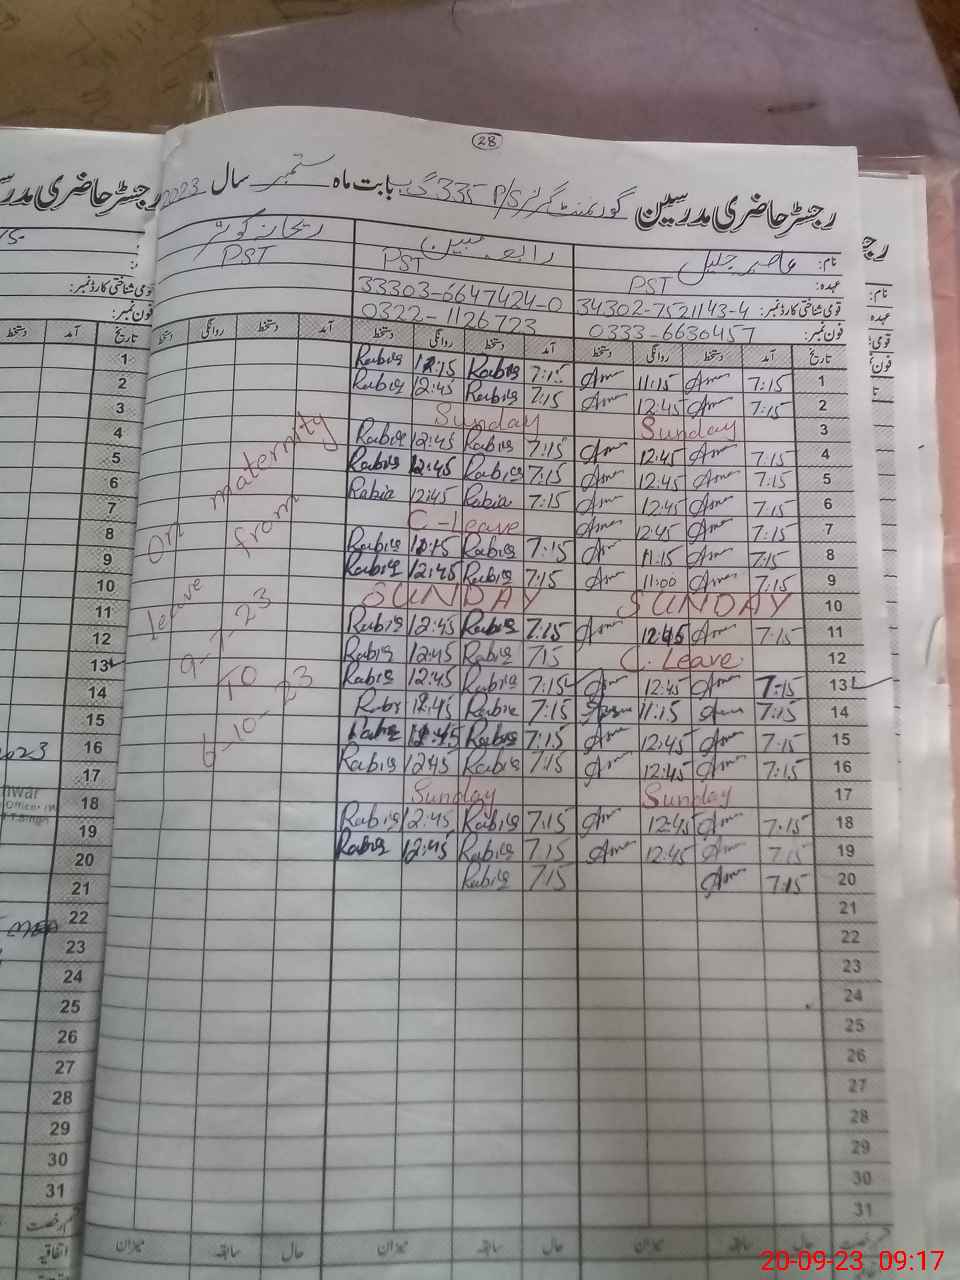 28
رجسٹر حاضری مدرسین گورنمنٹ گرلز P/S 335 گ ب بابت ماہ ستمبر سال 2023
نام: عاصمہ جلیل رابعہ مبین ریحانہ کوثر
عہدہ: PST PST PST
قومی شناختی کارڈ نمبر: 34302-7521143-4 33303-6647424-0
فون نمبر: 0333-6630457 0322-1126723
تاریخ آمد دستخط روانگی دستخط آمد دستخط روانگی دستخط آمد دستخط روانگی دستخط تاریخ
1 7:15 Asma 11:15 Asma 7:15 Rabia 12:15 Rabia
2 7:15 Asma 12:45 Asma 7:15 Rabia 12:45 Rabia
3 Sunday Sunday
4 7:15 Asma 12:45 Asma 7:15 Rabia 12:45 Rabia
5 7:15 Asma 12:45 Asma 7:15 Rabia 12:45 Rabia
6 7:15 Asma 12:45 Asma 7:15 Rabia 12:45 Rabia
7 7:15 Asma 12:45 Asma C-Leave
8 7:15 Asma 11:15 Asma 7:15 Rabia 12:15 Rabia
9 7:15 Asma 11:00 Asma 7:15 Rabia 12:45 Rabia
10 SUNDAY SUNDAY
11 7:15 Asma 12:45 Asma 7:15 Rabia 12:45 Rabia
12 C. Leave 715 Rabia 12:45 Rabia
13 7:15 Asma 12:45 Asma 7:15 Rabia 12:45 Rabia
14 7:15 Asma 11:15 Asma 7:15 Rabia 12:45 Rabia
15 7:15 Asma 12:45 Asma 7:15 Rabia 12:45 Rabia
16 7:15 Asma 12:45 Asma 7:15 Rabia 12:45 Rabia
17 Sunday Sunday
18 7:15 Asma 12:45 Asma 7:15 Rabia 12:45 Rabia
19 7:15 Asma 12:45 Asma 7:15 Rabia 12:45 Rabia
20 7:15 Asma 7:15 Rabia
21
22
23
24
25
26
27
28
29
30
31
on maternity
leave from
9-7-23
TO
6-10-23
حال سابقہ میزان حال سابقہ میزان حال سابقہ میزان
رجسٹر حاضری مدرسین
قومی شناختی کارڈ نمبر:
فون نمبر:
تاریخ آمد دستخط
1
2
3
4
5
6
7
8
9
10
11
12
13
14
15
16
17
18
19
20
21
22
23
24
25
26
27
28
29
30
31
اتفاقیہ
نام:
عہدہ
قومی
فون
20-09-23 09:17